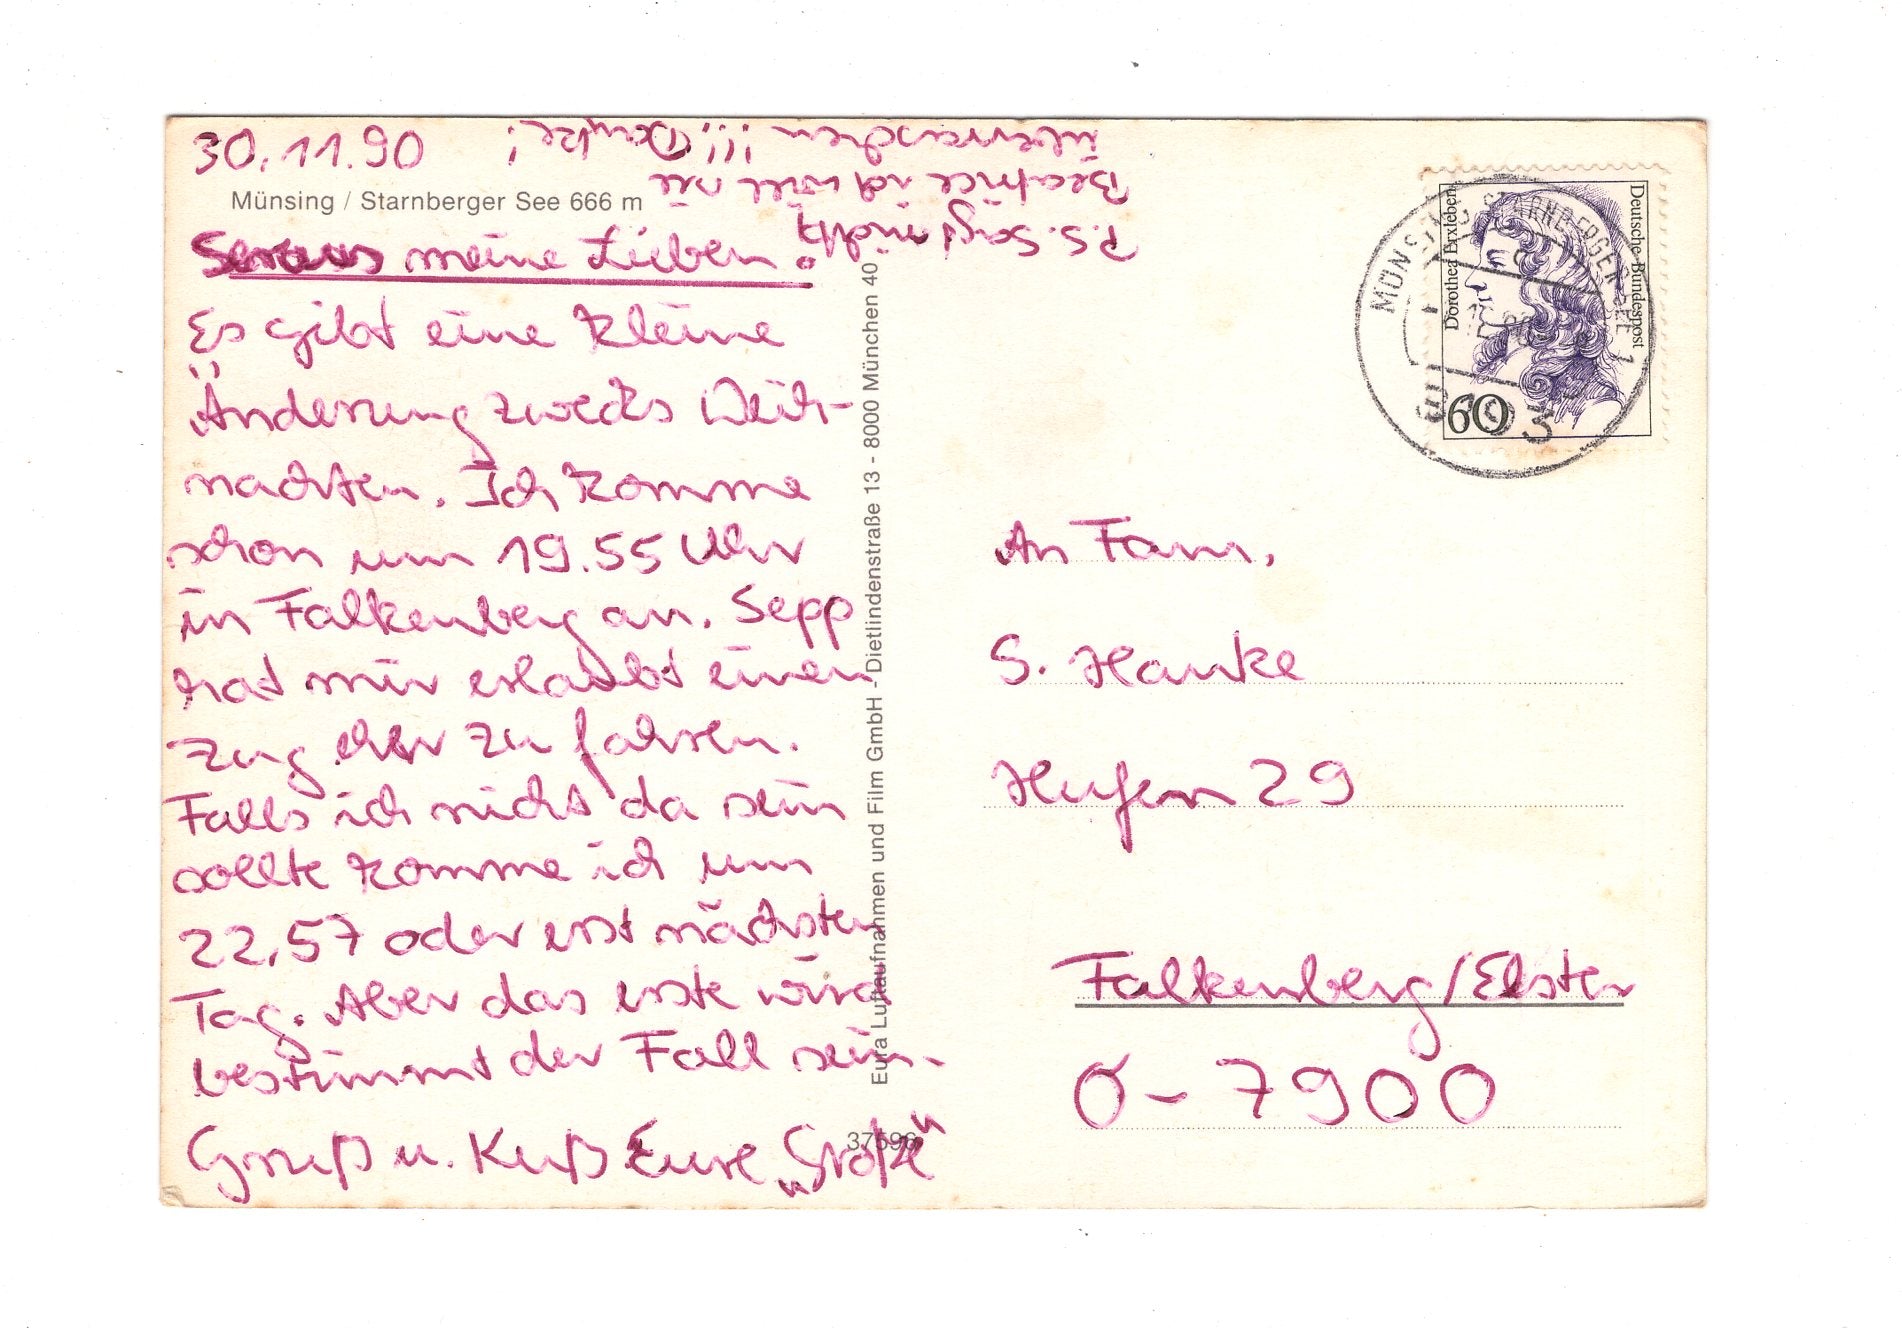 30.11.90
Münsing / Starnberger See 666 m
Servus meine Lieben.
Es gibt eine kleine
Änderung zwecks Weih-
nachten. Ich komme
schon um 19.55 Uhr
in Falkenberg an. Sepp
hat mir erlaubt einen
Zug eher zu fahren.
Falls ich nicht da sein
sollte komme ich um
22.57 oder erst nächsten
Tag. Aber das erste wird
bestimmt der Fall sein.
Gruß u. Kuß Eure „Große"
37596
P.S. Sagt nicht
Beatrice ich will sie
überraschen !!! Danke!
Eura Luftaufnahmen und Film GmbH - Dietlindenstraße 13 - 8000 München 40
Deutsche Bundespost
Dorothea Erxleben
60
MÜNSING STARNBERGER SEE 1
An Fam.
S. Hanke
Hufen 29
Falkenberg/Elster
O-7900